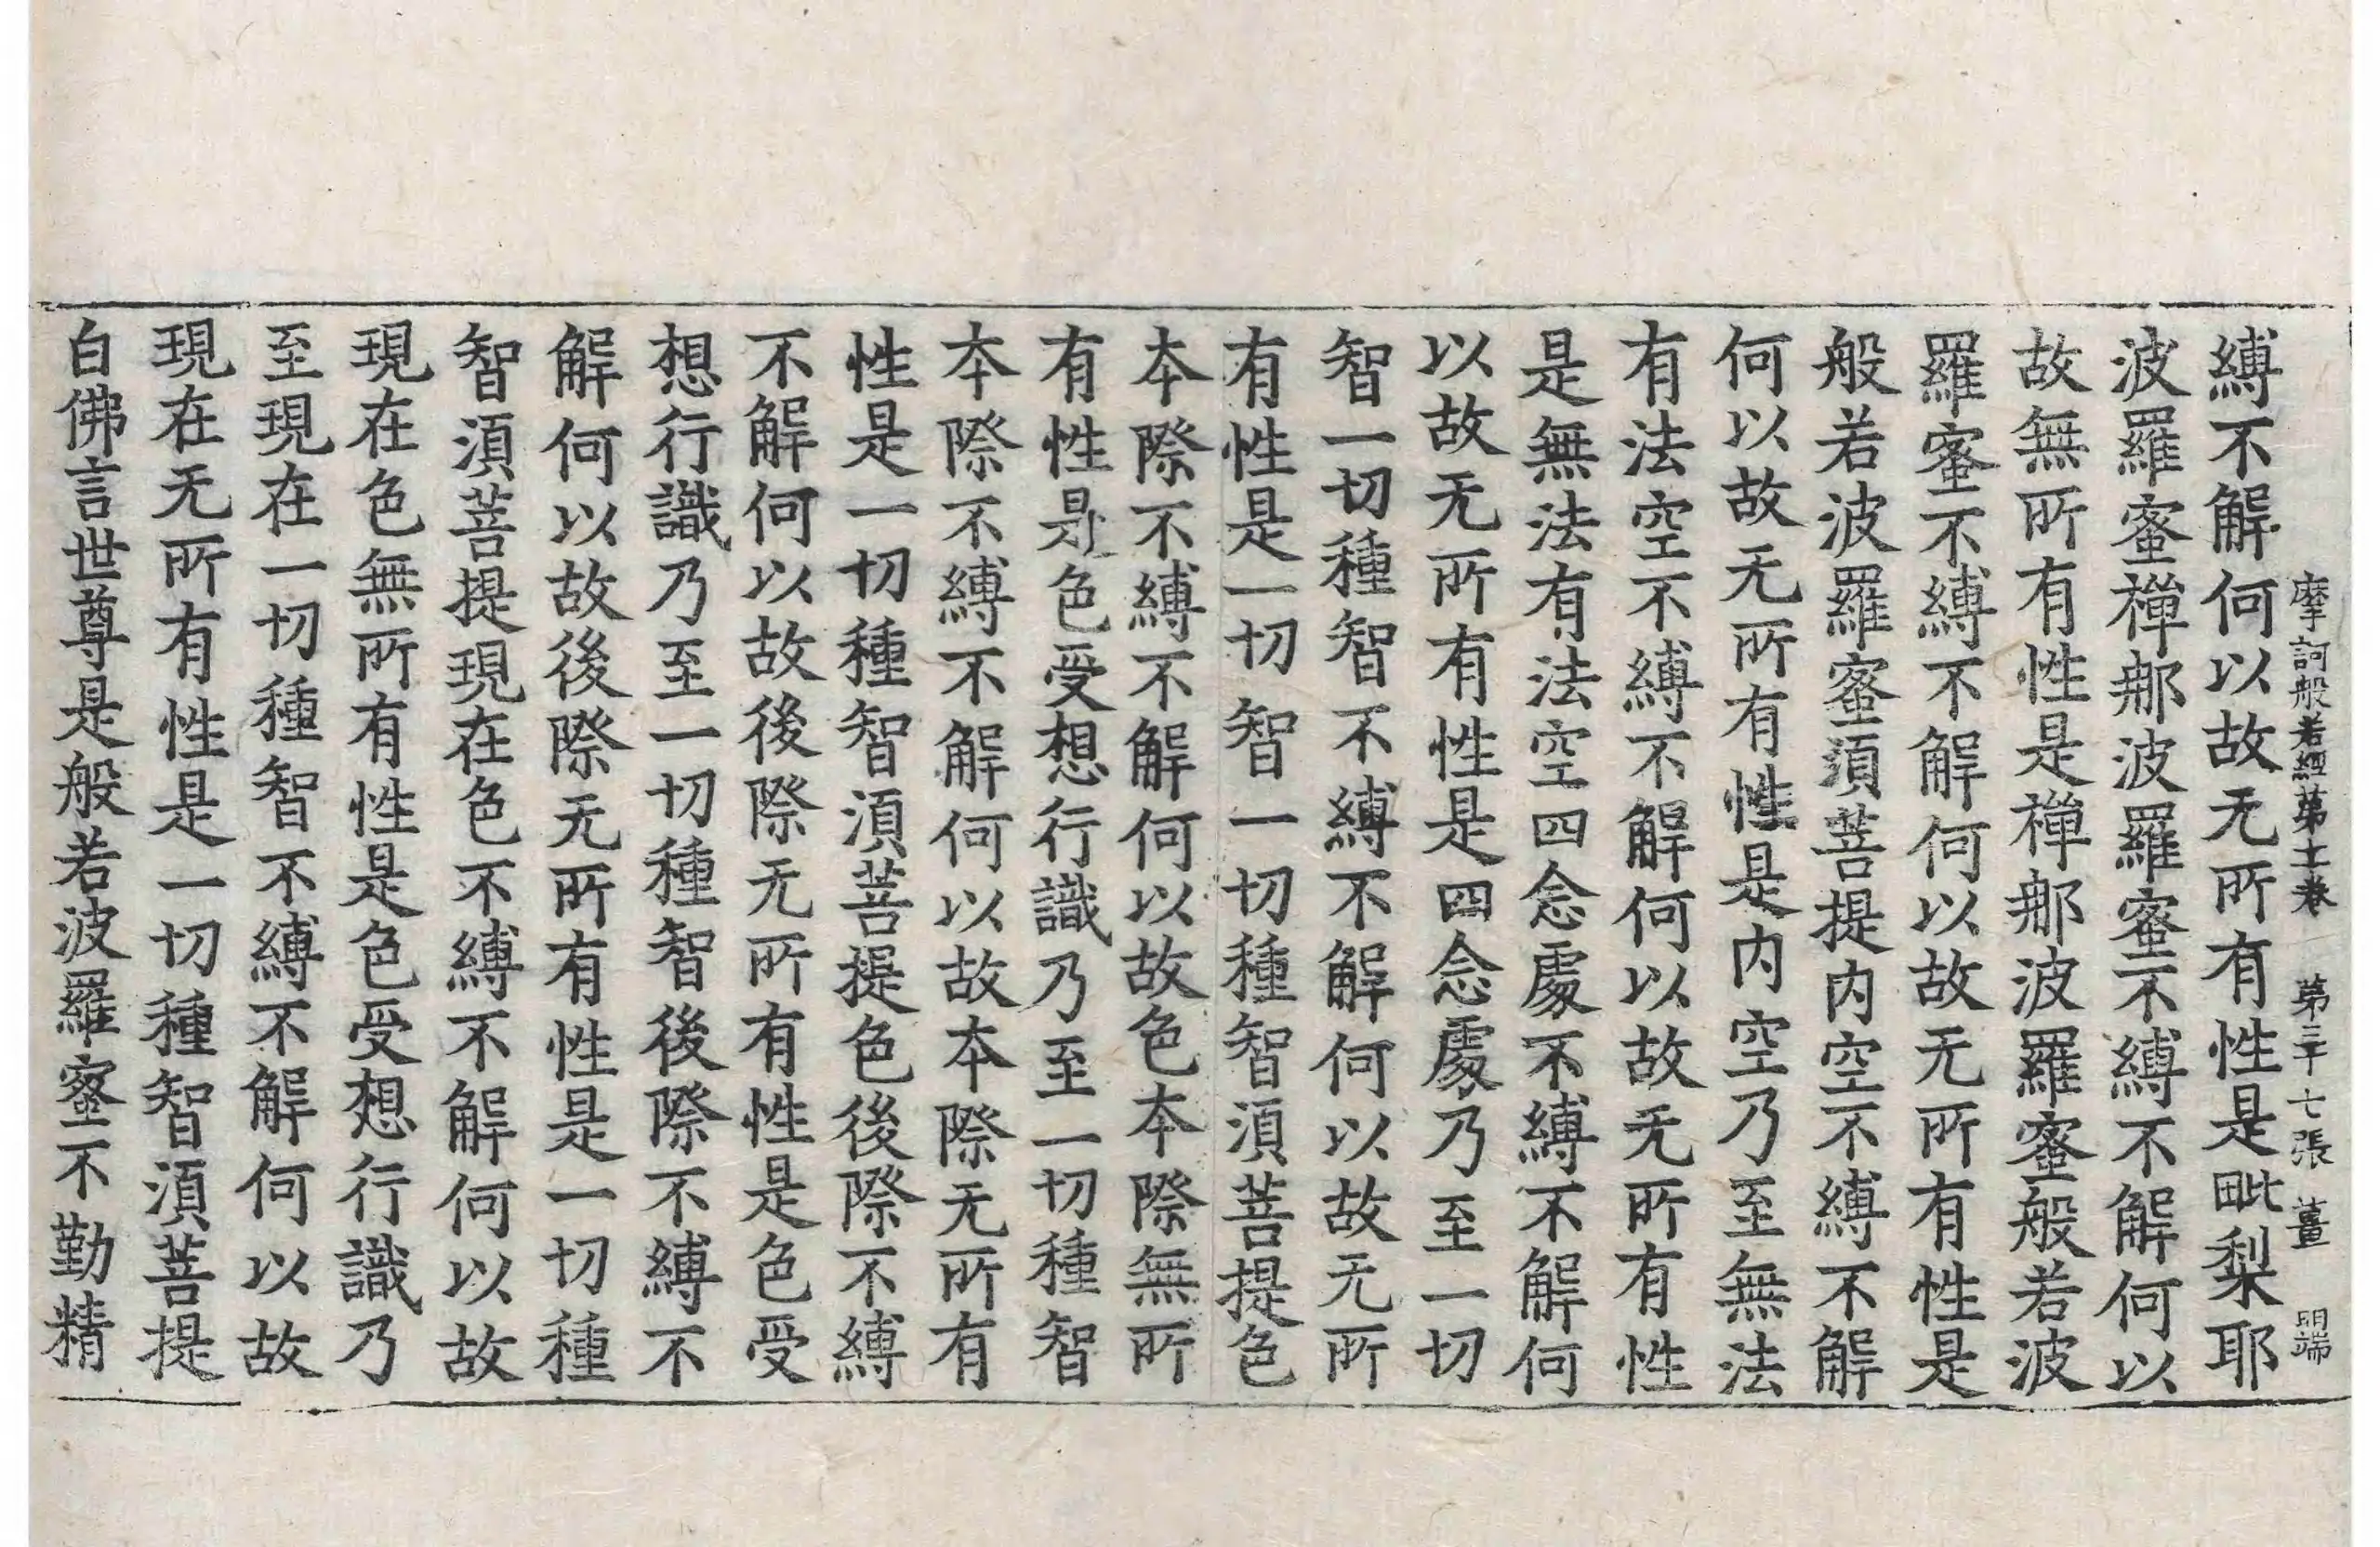 摩訶般若經第十一卷 第三十七張 薑 明端
縛不解何以故无所有性是毗梨耶
波羅蜜禪那波羅蜜不縛不解何以
故無所有性是禪那波羅蜜般若波
羅蜜不縛不解何以故无所有性是
般若波羅蜜須菩提内空不縛不解
何以故无所有性是内空乃至無法
有法空不縛不解何以故无所有性
是無法有法空四念處不縛不解何
以故无所有性是四念處乃至一切
智一切種智不縛不解何以故无所
有性是一切智一切種智須菩提色
本際不縛不解何以故色本際無所
有性是色受想行識乃至一切種智
本際不縛不解何以故本際无所有
性是一切種智須菩提色後際不縛
不解何以故後際无所有性是色受
想行識乃至一切種智後際不縛不
解何以故後際无所有性是一切種
智須菩提現在色不縛不解何以故
現在色無所有性是色受想行識乃
至現在一切種智不縛不解何以故
現在无所有性是一切種智須菩提
白佛言世尊是般若波羅蜜不勤精